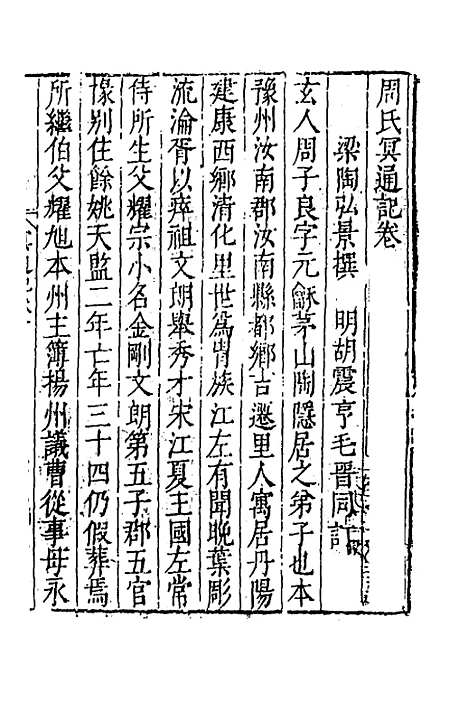 周氏冥通記卷
梁陶弘景撰　明胡震亨毛晉同訂
玄人周子良字元龢茅山陶隱居之弟子也本
豫州汝南郡汝南縣都鄉吉遷里人寓居丹陽
建康西鄉清化里世爲胄族江左有聞晚葉彫
流淪胥以瘁祖文朗舉秀才宋江夏王國左常
侍所生父耀宗小名金剛文朗第五子郡五官
掾别住餘姚天監二年亡年三十四仍假葬焉
所繼伯父耀旭本州主簿楊州議曹從事母永